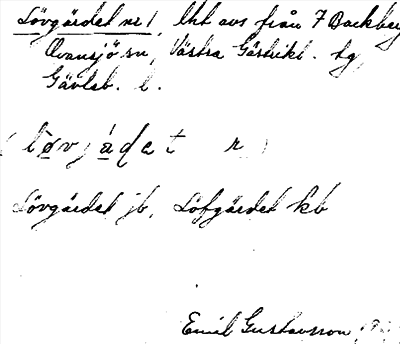 Lövgärdet nr 1, lht avs från 7 Backberg
Ovansjö sn, Västra Gästrikl. tg
Gävleb. l.
(lövjádet r)
Lövgärdet jb, Löfgärdet kb
Emil Gustavsson